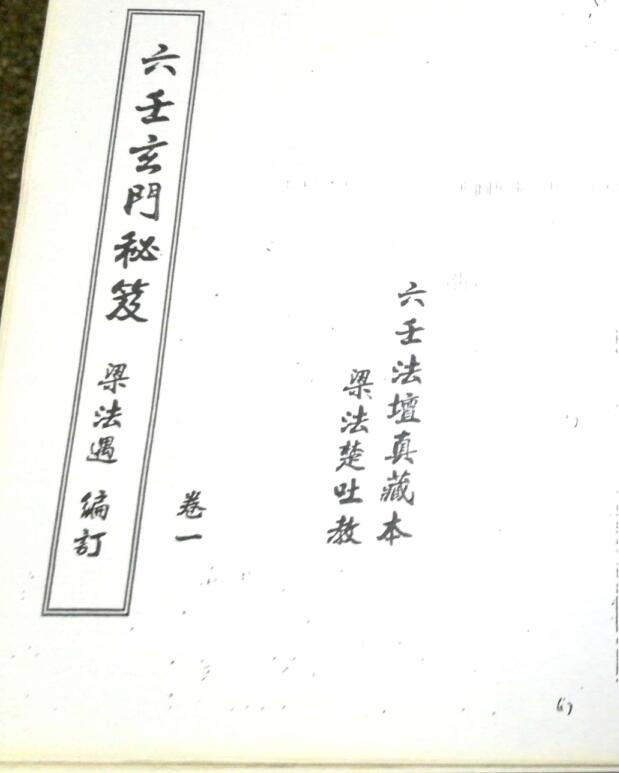 六壬法壇真藏本
梁法楚吐教
卷一
六壬玄門秘笈 梁法遇 編訂